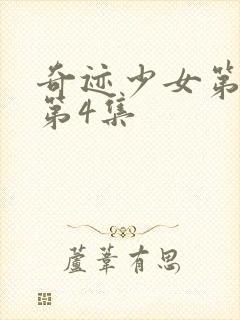 奇迹少女第
第4集
蘆葦有思